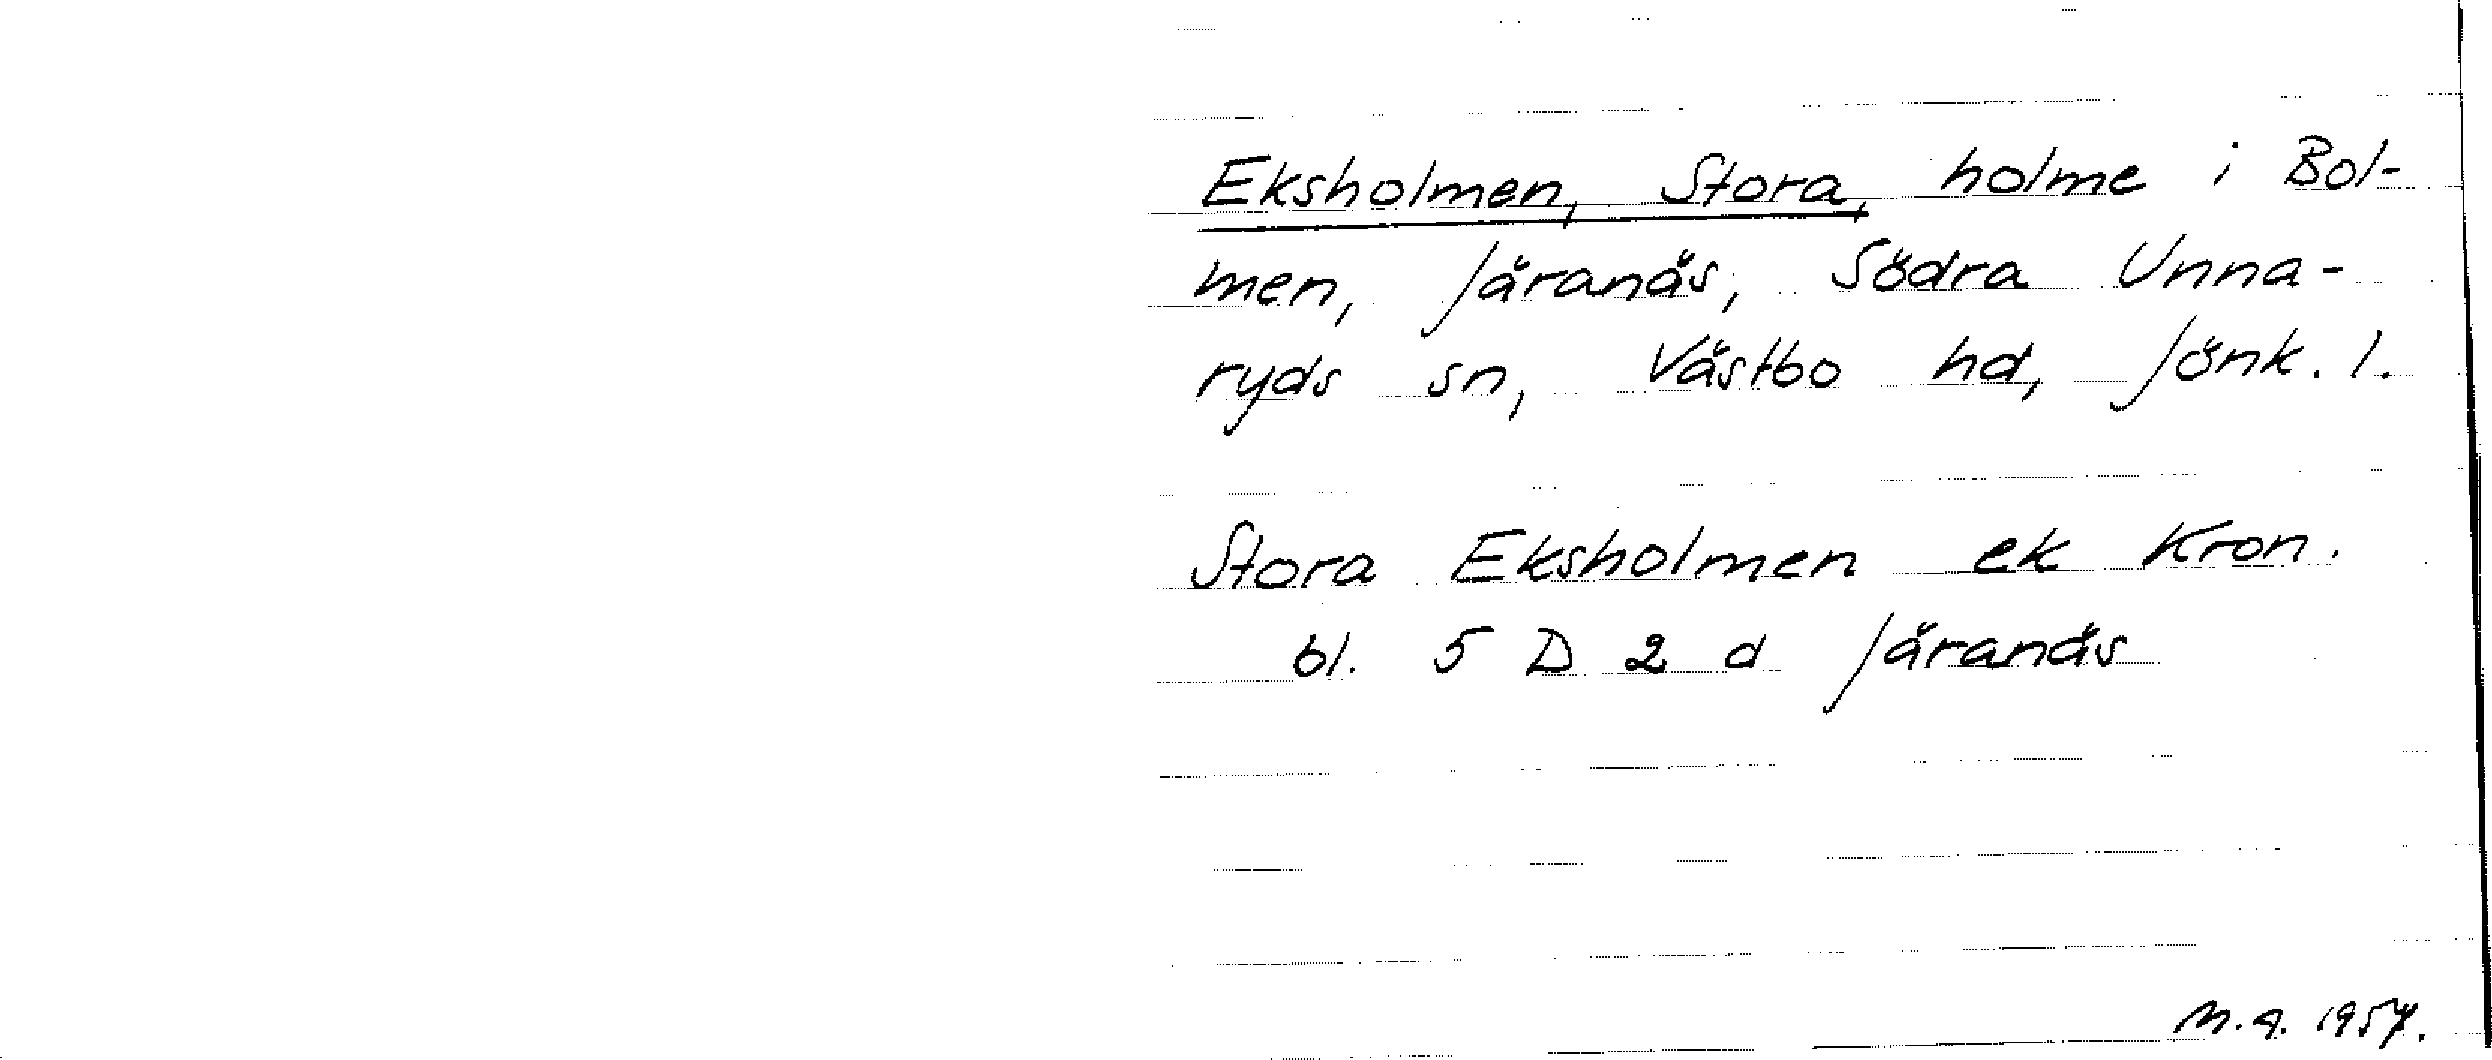 Eksholmen, Stora, holme i Bol-
men, Järanäs, Södra Unna-
ryds sn, Västbo hd, Jönk. l.
Stora Eksholmen ek Kron.
bl. 5 D 2 d Järanäs
M.A. 1957.